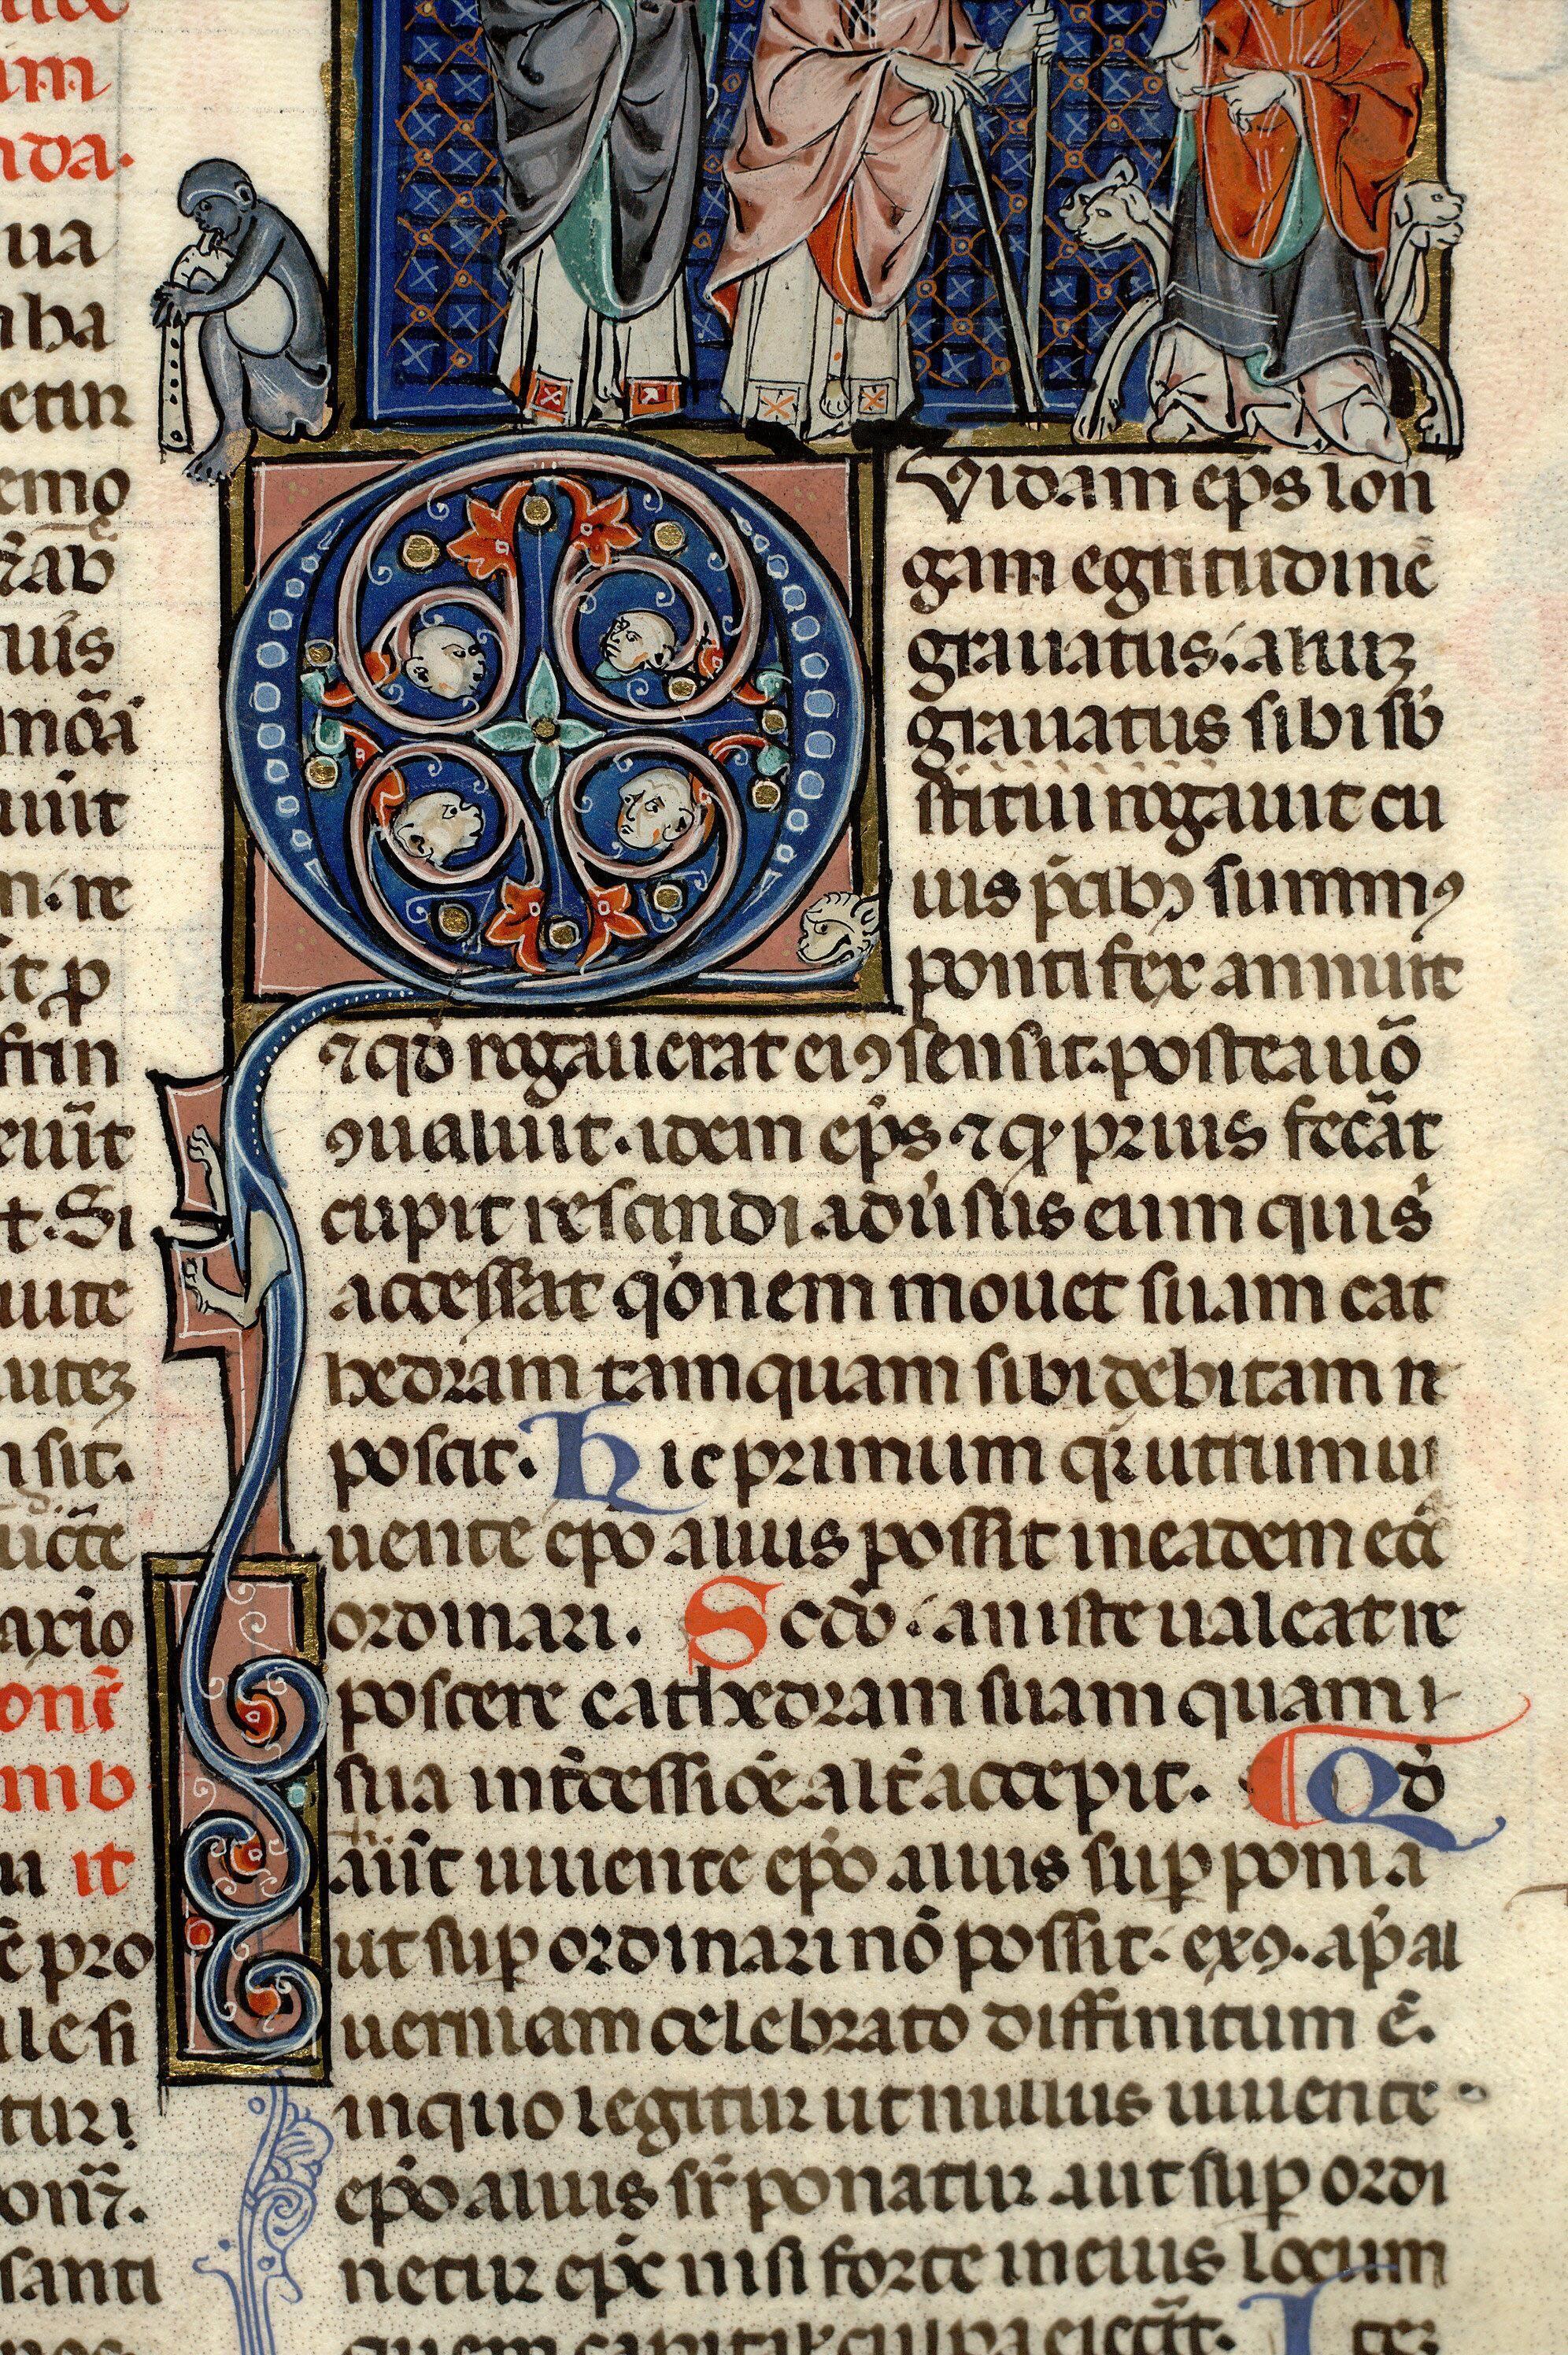 im
nda.
ua
aha
etur
emo
uis
uit
n. re
it p
frin
t. Si
uute
utez
n sit.
axio
u it
pro
santi
Vidam ep̄s lon
gam egritudinē
grauatus; aliuz
grauatus sibi sb̄
stitui rogauit cu
ius p̄cibꝫ summꝯ
pontifex annuit
⁊ qd̄ rogauerat eiꝯ sensit. postea uō
ꝯualuit. idem ep̄s ⁊ qꝫ prius fecāt
cupit rescindi adūsus eum quis
accessāt qōnem mouet suam cat
hedram tamquam sibi debitam re
poscit. Hic primum qr̄ utrum ui
uente ep̄o alius possit in eadem ecc̄
ordinari. Scdō. an iste ualeat re
poscere cathedram suam quam i
sua int̄cessiōe alt̄ accepit. Qd̄
aūt uiuente ep̄o alius suꝑ poni a
ut suꝑ ordinari nō possit. ex ꝯ. ap̄ al
uerniam celebrato diffinitum ē.
in quo legitur ut nullus uiuente
ep̄o alius sr̄ponatur aut suꝑ ordi
netur ep̄c nisi forte in eius locum
quem capitīr culpa eiecāt. Itez